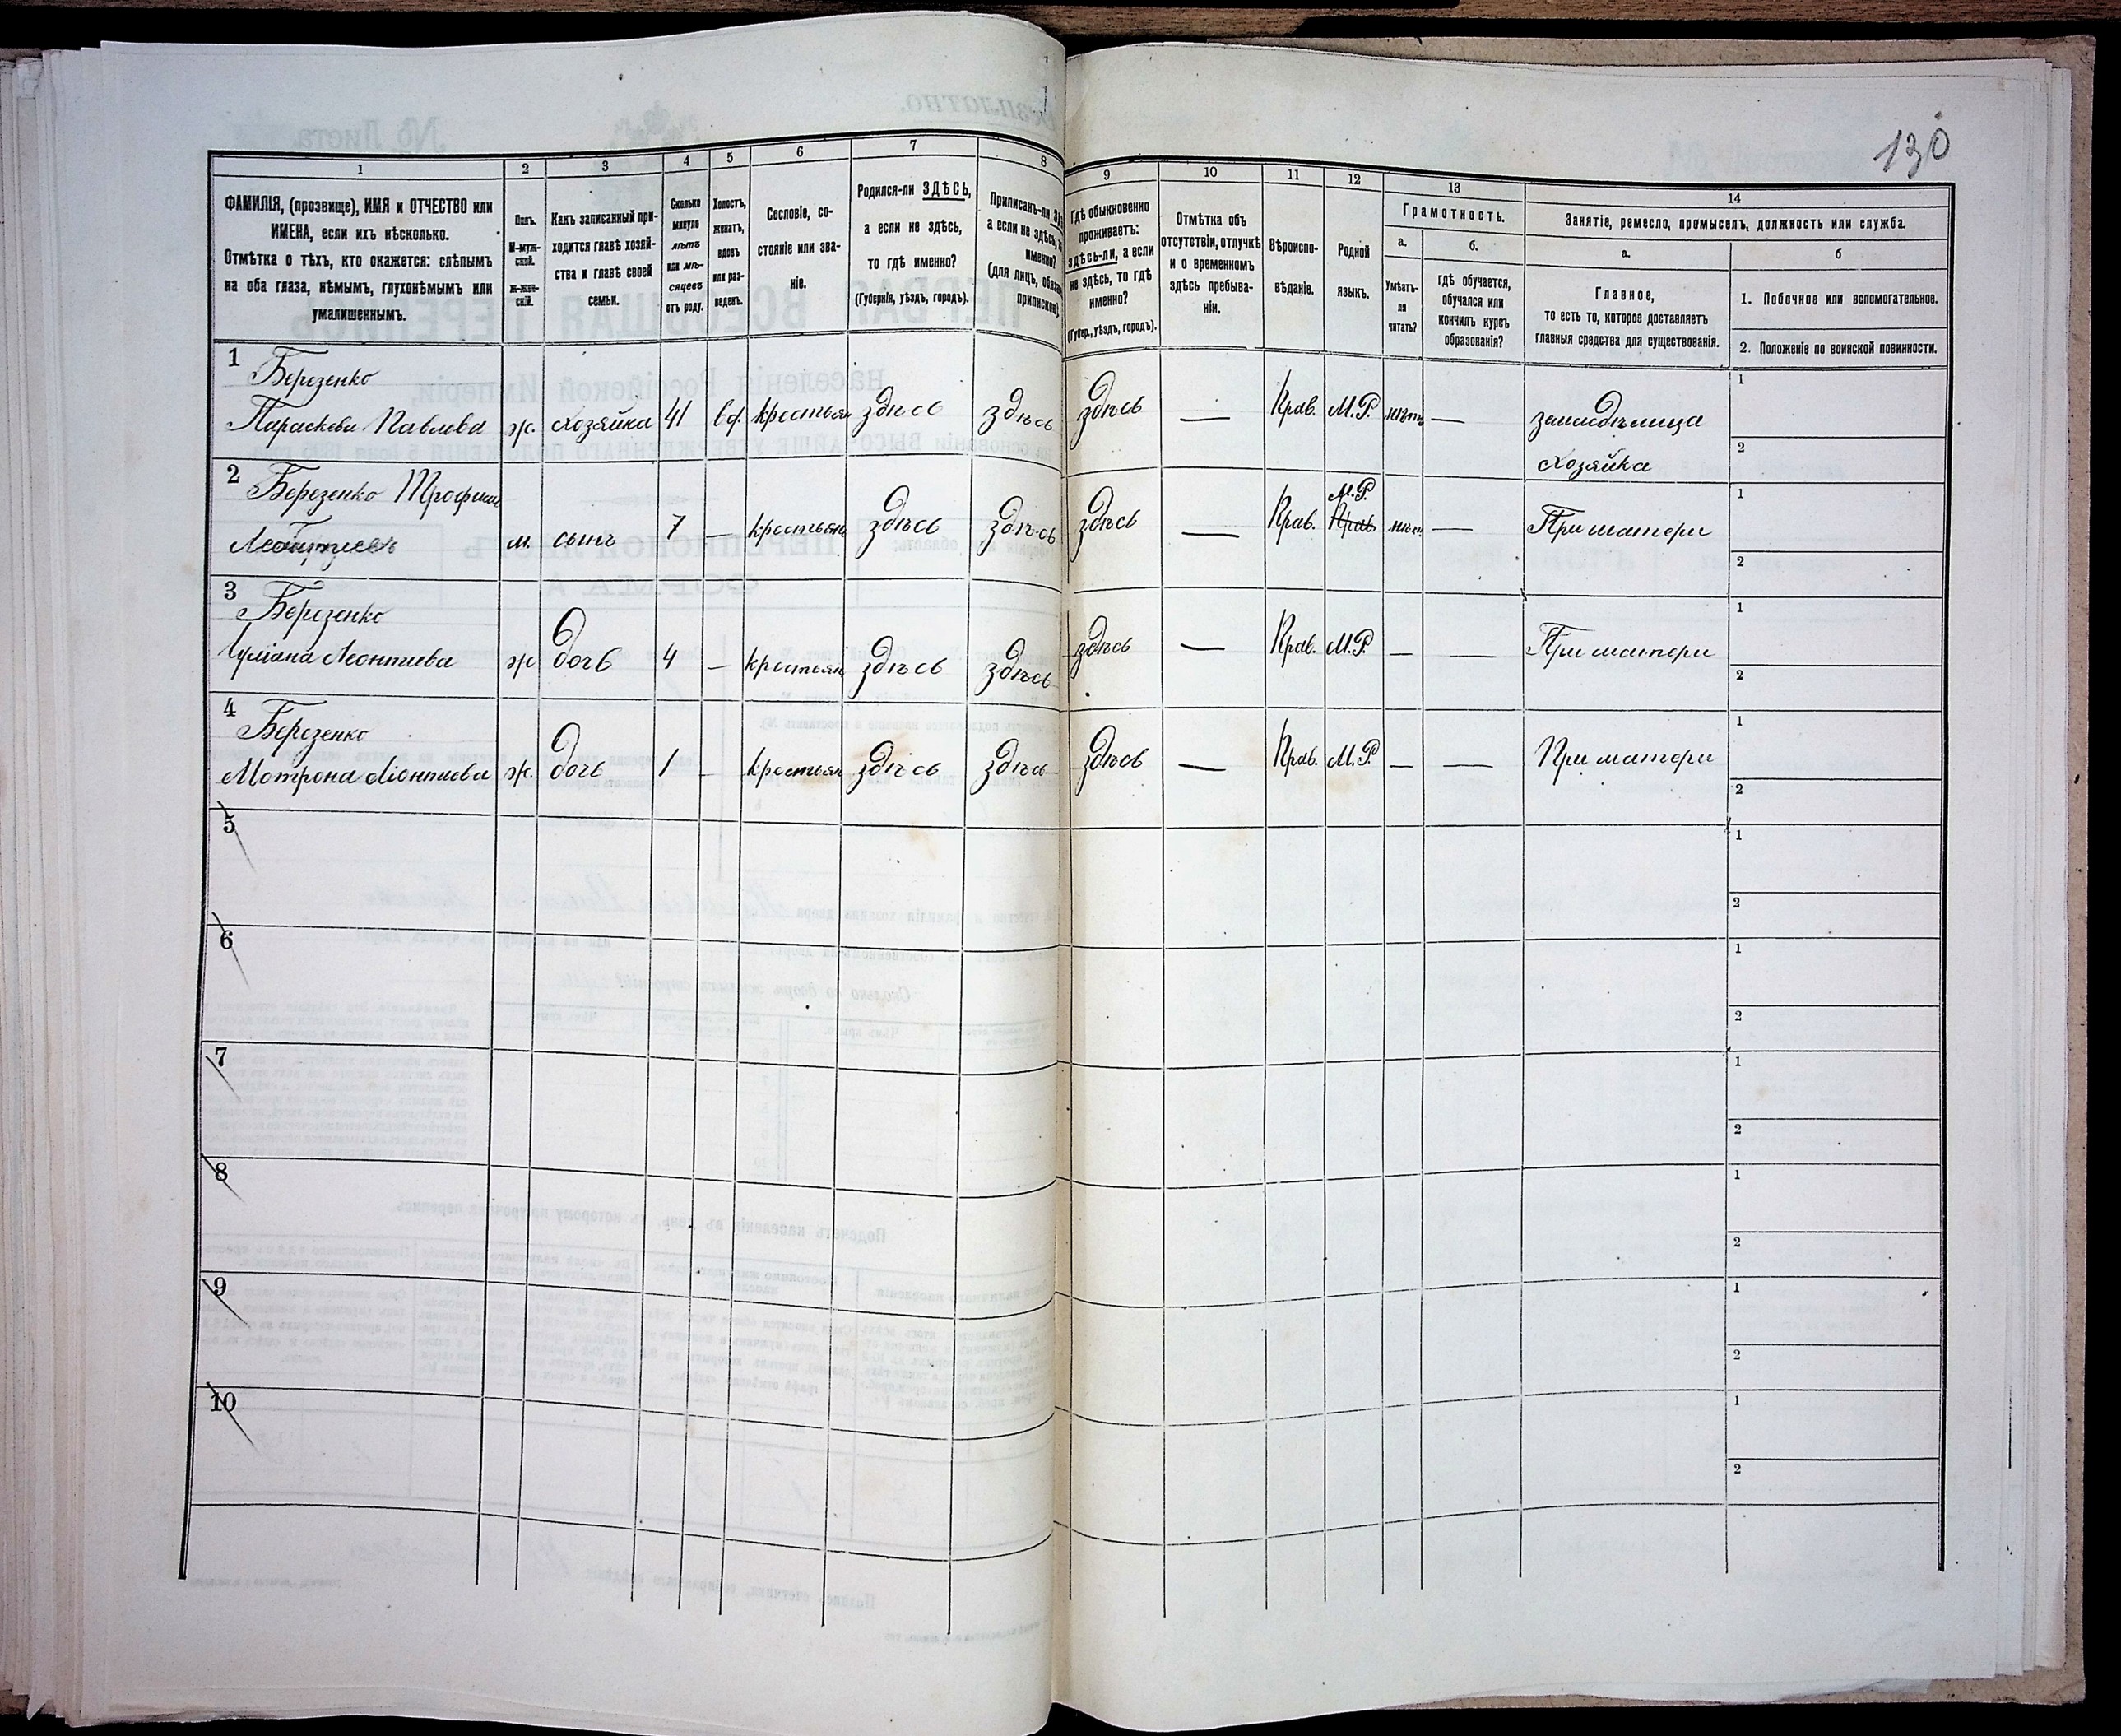 130
1
2
3
4
5
6
7
8
9
10
11
12
13
14
ФАМИЛІЯ, (прозвище), ИМЯ и ОТЧЕСТВО или
ИМЕНА, если ихъ нѣсколько.
Отмѣтка о тѣхъ, кто окажется: слѣпымъ
на оба глаза, нѣмымъ, глухонѣмымъ или
умалишеннымъ.
Полъ.
М-муж-
ской.
Ж-жен-
скій.
Какъ записанный при-
ходится главѣ хозяй-
ства и главѣ своей
семьи.
Сколько
минуло
лѣтъ
или мѣ-
сяцевъ
отъ роду.
Холостъ,
женатъ,
вдовъ
или раз-
веденъ.
Сословіе, со-
стояніе или зва-
ніе.
Родился-ли ЗДѢСЬ,
а если не здѣсь,
то гдѣ именно?
(Губернія, уѣздъ, городъ).
Приписанъ-ли
а если не здѣсь,
именно?
(для лицъ,
Гдѣ обыкновенно
проживаетъ:
здѣсь-ли, а если
не здѣсь, то гдѣ
именно?
(Губер., уѣздъ, городъ).
Отмѣтка объ
отсутствіи, отлучкѣ
и о временномъ
здѣсь пребыва-
ніи.
Вѣроиспо-
вѣданіе.
Родной
языкъ.
Грамотность.
а.
б.
Умѣетъ-
ли
читать?
гдѣ обучается,
обучался или
кончилъ курсъ
образованія?
Занятіе, ремесло, промыселъ, должность или служба.
а.
б
Главное,
то есть то, которое доставляетъ
главныя средства для существованія.
1. Побочное или вспомогательное.
2. Положеніе по воинской повинности.
1 Березенко
Параскева Павлева ж. хозяйка 41 вд. крестьян здѣсь здѣсь здѣсь — Прав. М.Р. нѣтъ — земледѣлица
хозяйка
1
2
2 Березенко Трофим
Леонтиевъ м. сынъ 7 — крестьян здѣсь здѣсь здѣсь — Прав. М.Р. Прав нѣтъ — При матери
1
2
3 Березенко
Ульiана Леонтиева ж дочь 4 — крестьян здѣсь здѣсь здѣсь — Прав. М.Р. — — При матери
1
2
4 Березенко
Мотрона Леонтиева ж. дочь 1 — крестьян здѣсь здѣсь здѣсь — Прав. М.Р. — — При матери
1
2
5
1
2
6
1
2
7
1
2
8
1
2
9
1
2
10
1
2